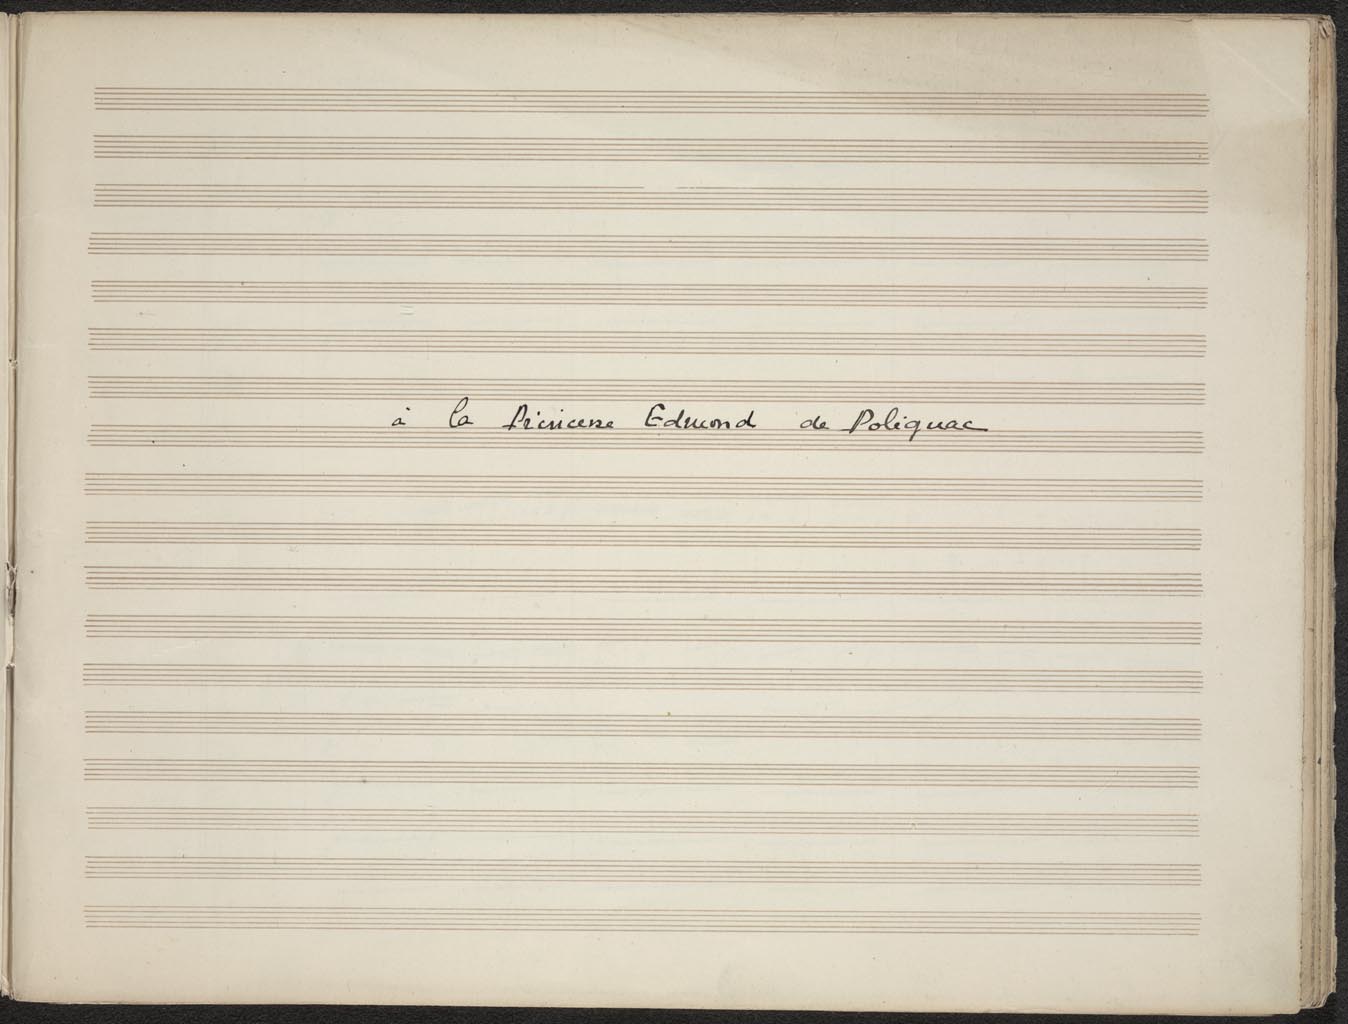 à la Princesse Edmond de Polignac